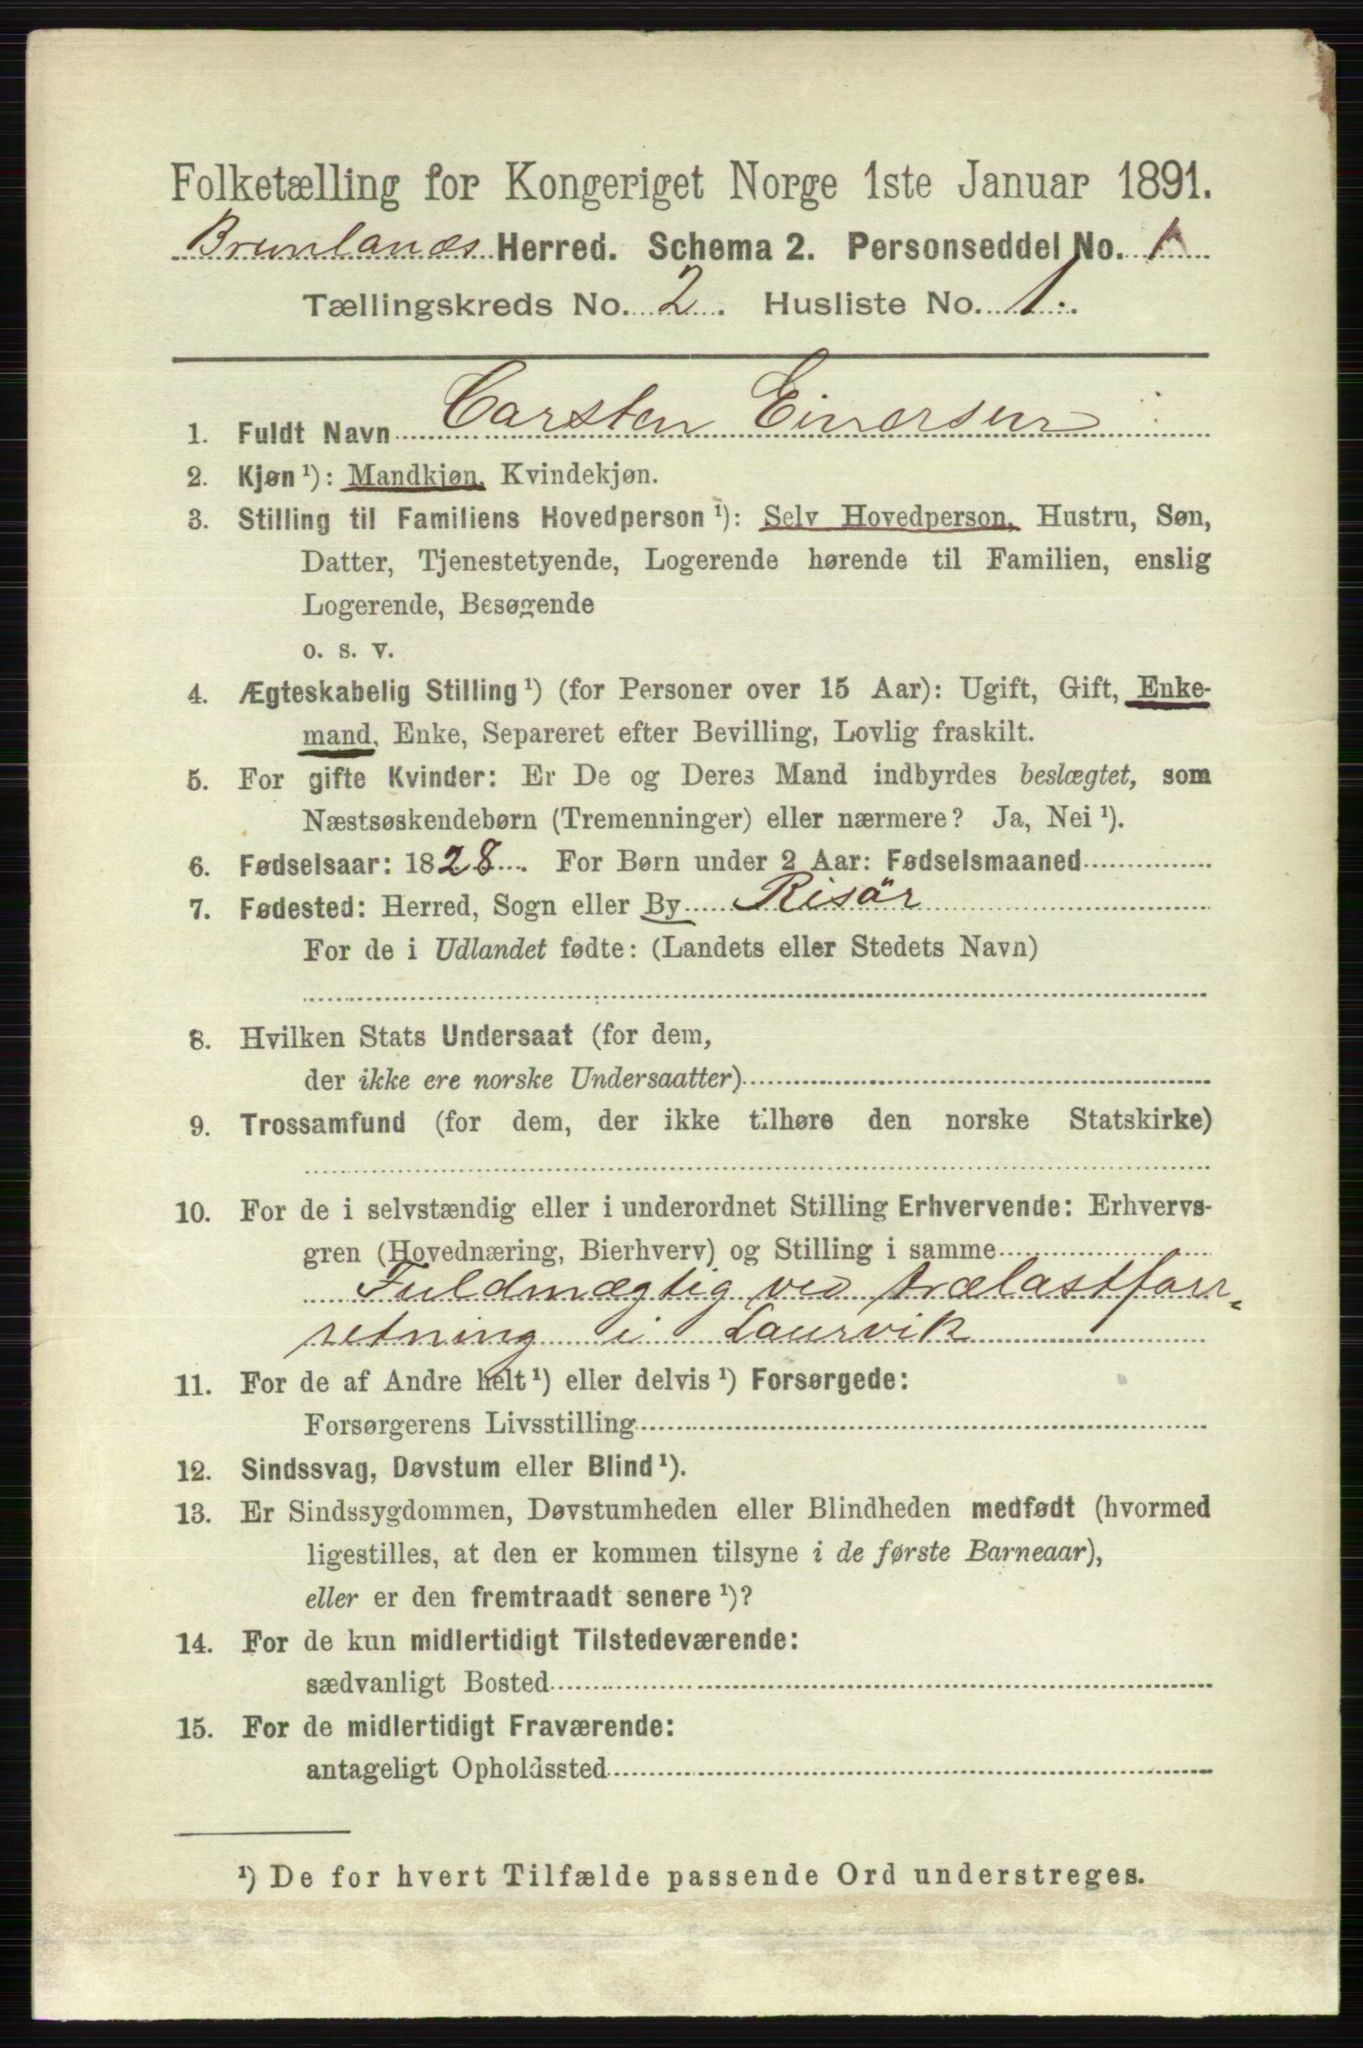 Folketælling for Kongeriget Norge 1ste Januar 1891.
Brunlanæs Herred. Schema 2. Personseddel No. 1
Tællingskreds No. 2. Husliste No. 1.
1. Fuldt Navn Carsten Einersen
2. Kjøn ¹): Mandkjøn, Kvindekjøn.
3. Stilling til Familiens Hovedperson ¹): Selv Hovedperson, Hustru, Søn,
Datter, Tjenestetyende, Logerende hørende til Familien, enslig
Logerende, Besøgende
o. s. v.
4. Ægteskabelig Stilling ¹) (for Personer over 15 Aar): Ugift, Gift, Enke-
mand, Enke, Separeret efter Bevilling, Lovlig fraskilt.
5. For gifte Kvinder: Er De og Deres Mand indbyrdes beslægtet, som
Næstsøskendebørn (Tremenninger) eller nærmere? Ja, Nei ¹).
6. Fødselsaar: 1828. For Børn under 2 Aar: Fødselsmaaned
7. Fødested: Herred, Sogn eller By Risör
For de i Udlandet fødte: (Landets eller Stedets Navn)
8. Hvilken Stats Undersaat (for dem,
der ikke ere norske Undersaatter)
9. Trossamfund (for dem, der ikke tilhøre den norske Statskirke)
10. For de i selvstændig eller i underordnet Stilling Erhvervende: Erhvervs-
gren (Hovednæring, Bierhverv) og Stilling i samme
Fuldmægtig ved trælastfor-
retning i Laurvik
11. For de af Andre helt ¹) eller delvis ¹) Forsørgede:
Forsørgerens Livsstilling
12. Sindssvag, Døvstum eller Blind ¹).
13. Er Sindssygdommen, Døvstumheden eller Blindheden medfødt (hvormed
ligestilles, at den er kommen tilsyne i de første Barneaar),
eller er den fremtraadt senere ¹)?
14. For de kun midlertidigt Tilstedeværende:
sædvanligt Bosted
15. For de midlertidigt Fraværende:
antageligt Opholdssted
¹) De for hvert Tilfælde passende Ord understreges.